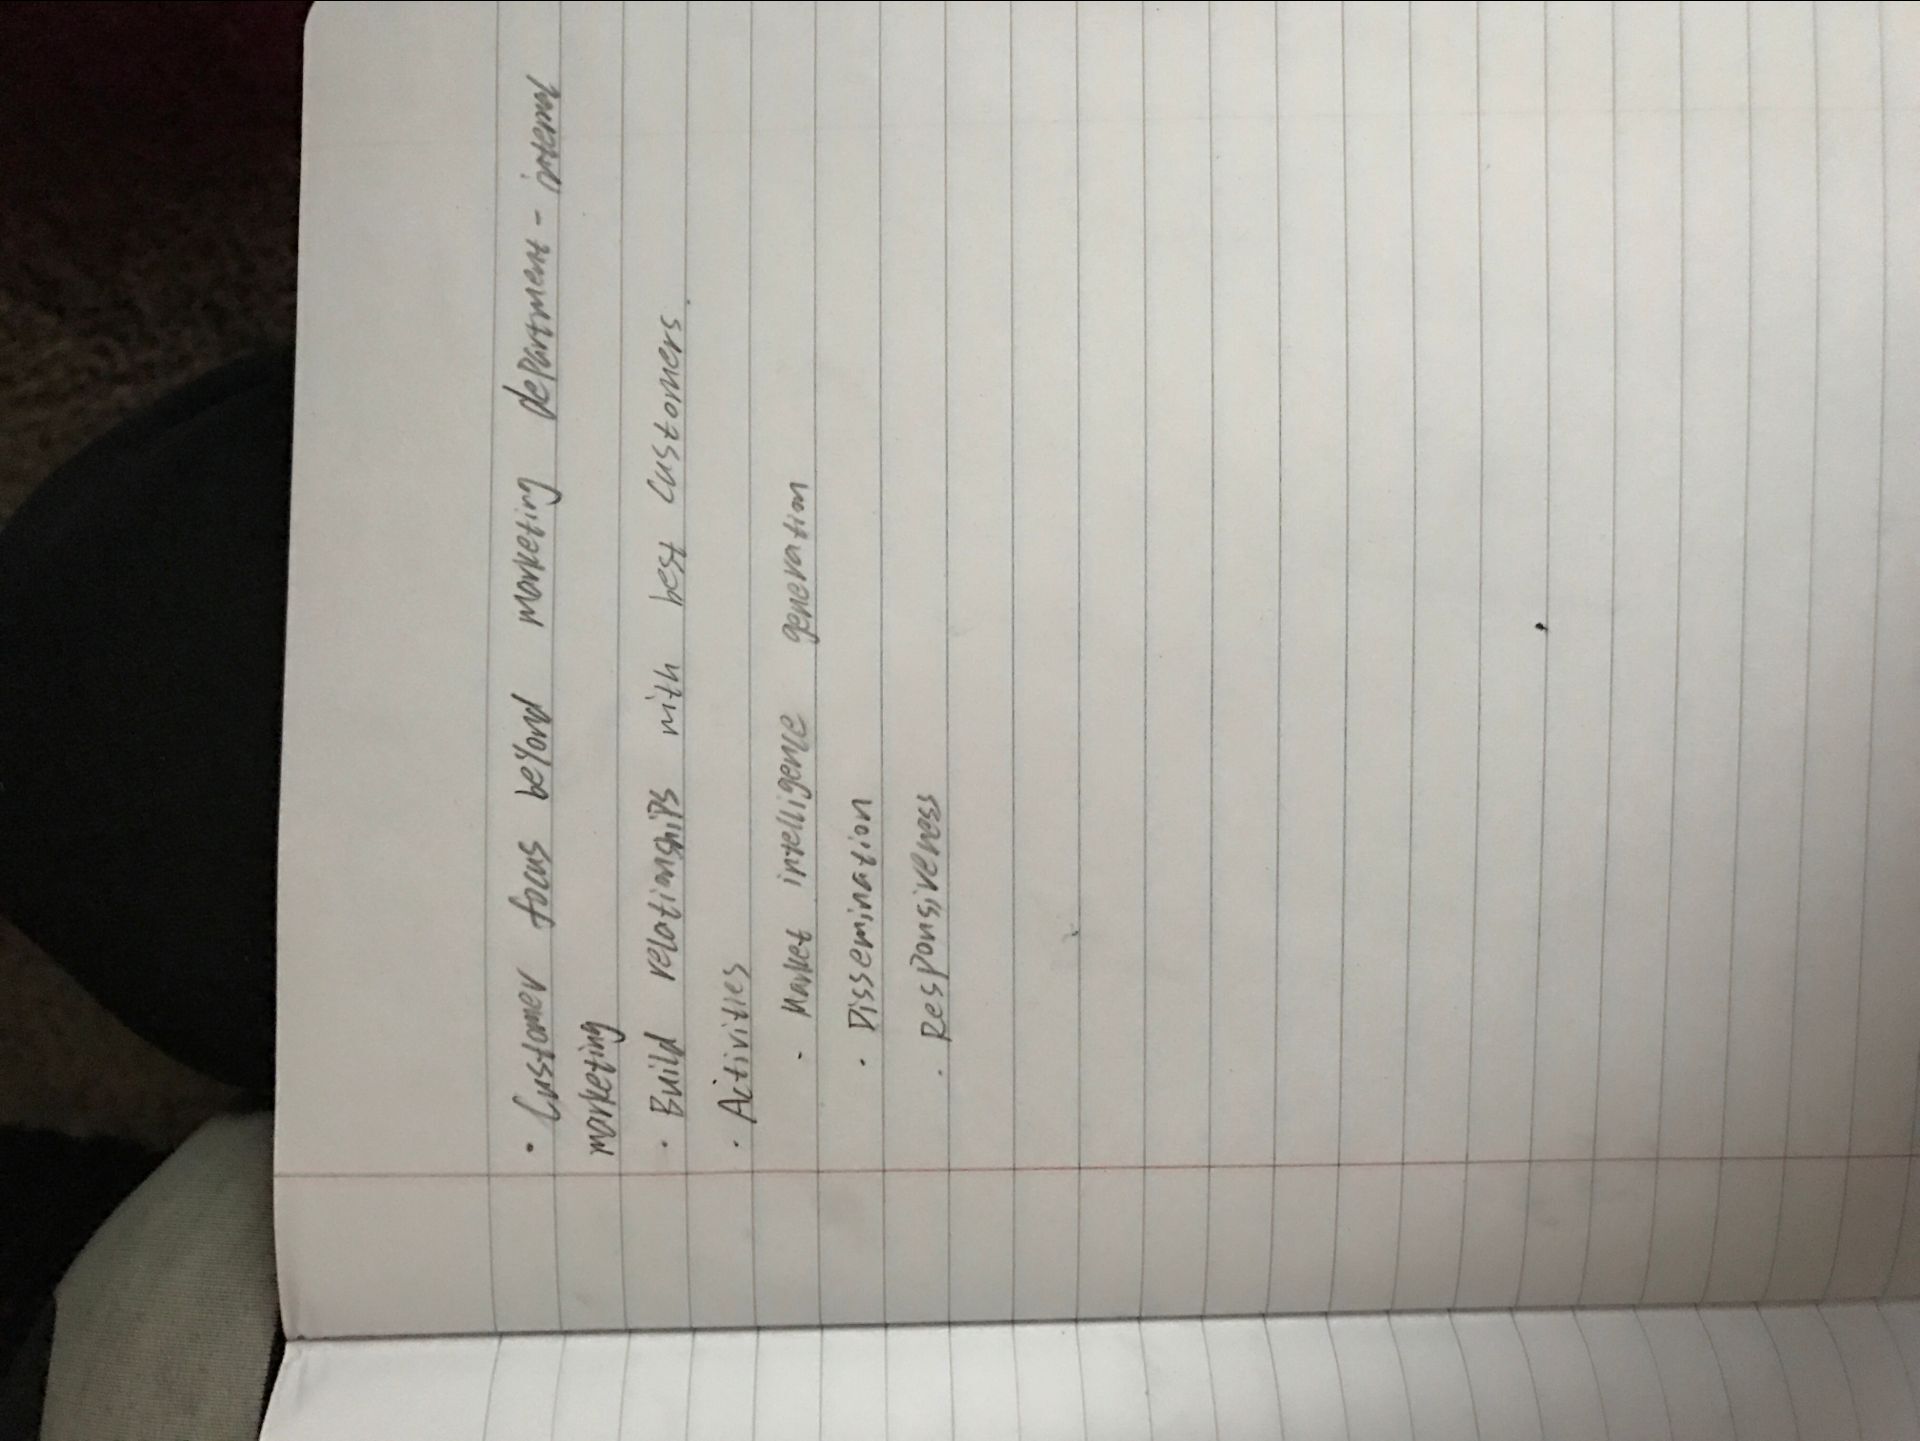 · Customer focus beyond marketing department - internal
marketing
· Build relationships with best customers
· Activities
· Market intelligence generation
· Dissemination
· Responsiveness